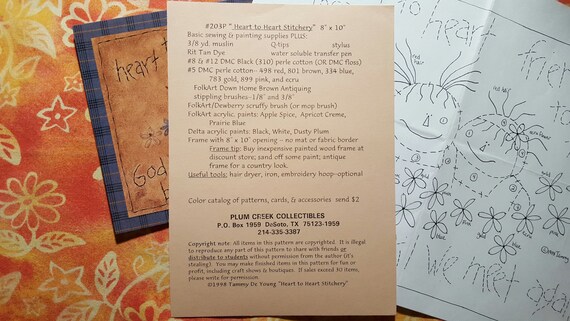 #203P "Heart to Heart Stitchery" 8" x 10"
Basic sewing & painting supplies PLUS:
3/8 yd. muslin Q-tips stylus
Rit Tan Dye water soluble transfer pen
#8 & #12 DMC Black (310) perle cotton (OR DMC floss)
#5 DMC perle cotton- 498 red, 801 brown, 334 blue,
783 gold, 899 pink, and ecru
FolkArt Down Home Brown Antiquing
stippling brushes-1/8" and 3/8"
FolkArt/Dewberry scruffy brush (or mop brush)
FolkArt acrylic paints: Apple Spice, Apricot Creme,
Prairie Blue
Delta acrylic paints: Black, White, Dusty Plum
Frame with 8" x 10" opening - no mat or fabric border
Frame tip: Buy inexpensive painted wood frame at
discount store; sand off some paint; antique
frame for a country look.
Useful tools; hair dryer, iron, embroidery hoop-optional
Color catalog of patterns, cards, & accessories send $2
PLUM CREEK COLLECTIBLES
P.O. Box 1959 DeSoto, TX 75123-1959
214-335-3387
Copyright note: All items in this pattern are copyrighted. It is illegal
to reproduce any part of this pattern to share with friends or
distribute to students without permission from the author (it's
stealing). You may make finished items in this pattern for fun or
profit, including craft shows & boutiques. If sales exceed 30 items,
please write for permission.
©1998 Tammy De Young "Heart to Heart Stitchery"
heart t
God
heart
frien
to
red hair
we meet again